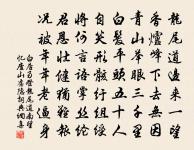 龍尾道邊來一望
香爐峰下去無因
青山舉眼三千里
白髮平頭五十人
自笑形骸紆組綬
將何言語掌絲綸
君恩壯健猶難報
況被年年老逼身
白居易登龍尾道南望
憶廬山舊隱詩